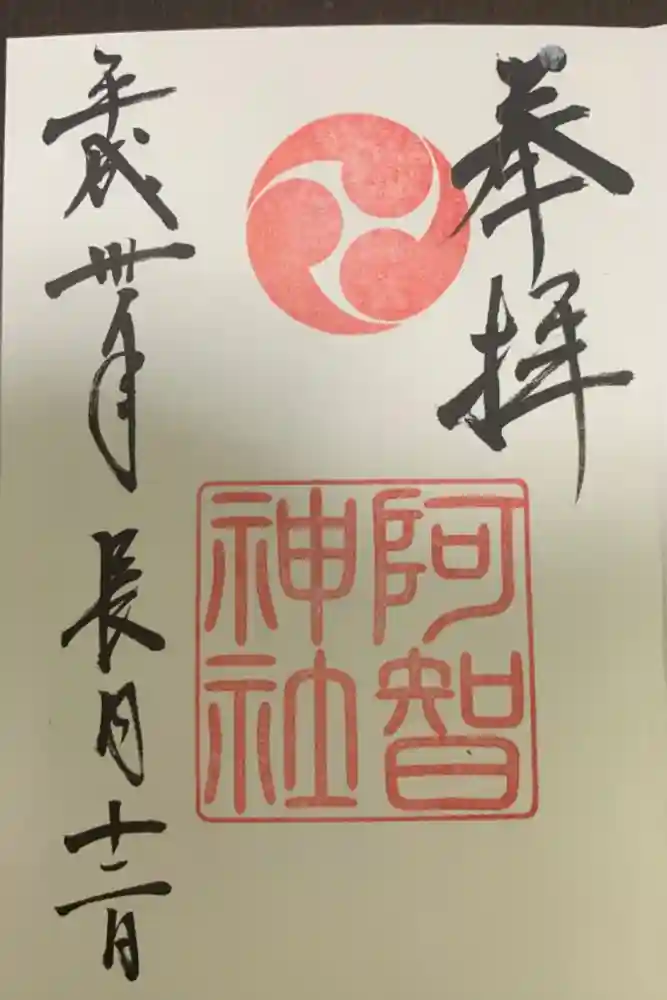 奉拝
阿智
神社
平成卅年 長月十二日